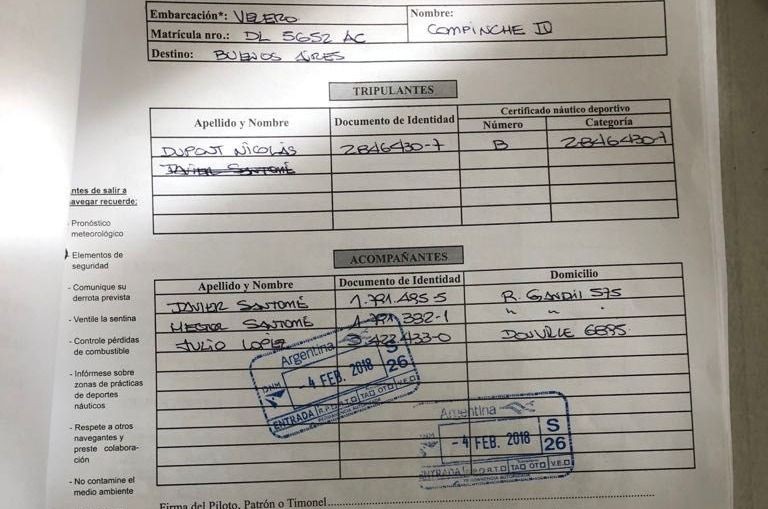 Embarcación*: VELERO
Nombre: COMPINCHE IV
Matrícula nro.: DL 5652 AC
Destino: BUENOS AIRES
TRIPULANTES
Apellido y Nombre Documento de Identidad Certificado náutico deportivo
Número Categoría
DUPONT NICOLÁS 2846430-7 B 2846430-7
JAVIER SANTOMÉ
ntes de salir a
avegar recuerde:
- Pronóstico
meteorológico
Elementos de
seguridad
- Comunique su
derrota prevista
- Ventile la sentina
- Controle pérdidas
de combustible
- Infórmese sobre
zonas de prácticas
de deportes
náuticos
- Respete a otros
navegantes y
preste colabora-
ción
- No contamine el
medio ambiente
ACOMPAÑANTES
Apellido y Nombre Documento de Identidad Domicilio
JAVIER SANTOMÉ 1.791.495-5 R. GANDII 575
HECTOR SANTOMÉ 1.791.332-1 " "
JULIO LOPEZ 422433-0 6695
Argentina
DNM - 4 FEB. 2018 S 26
ENTRADA
Argentina
- 4 FEB. 2018 S 26
ENTRADA
Firma del Piloto, Patrón o Timonel